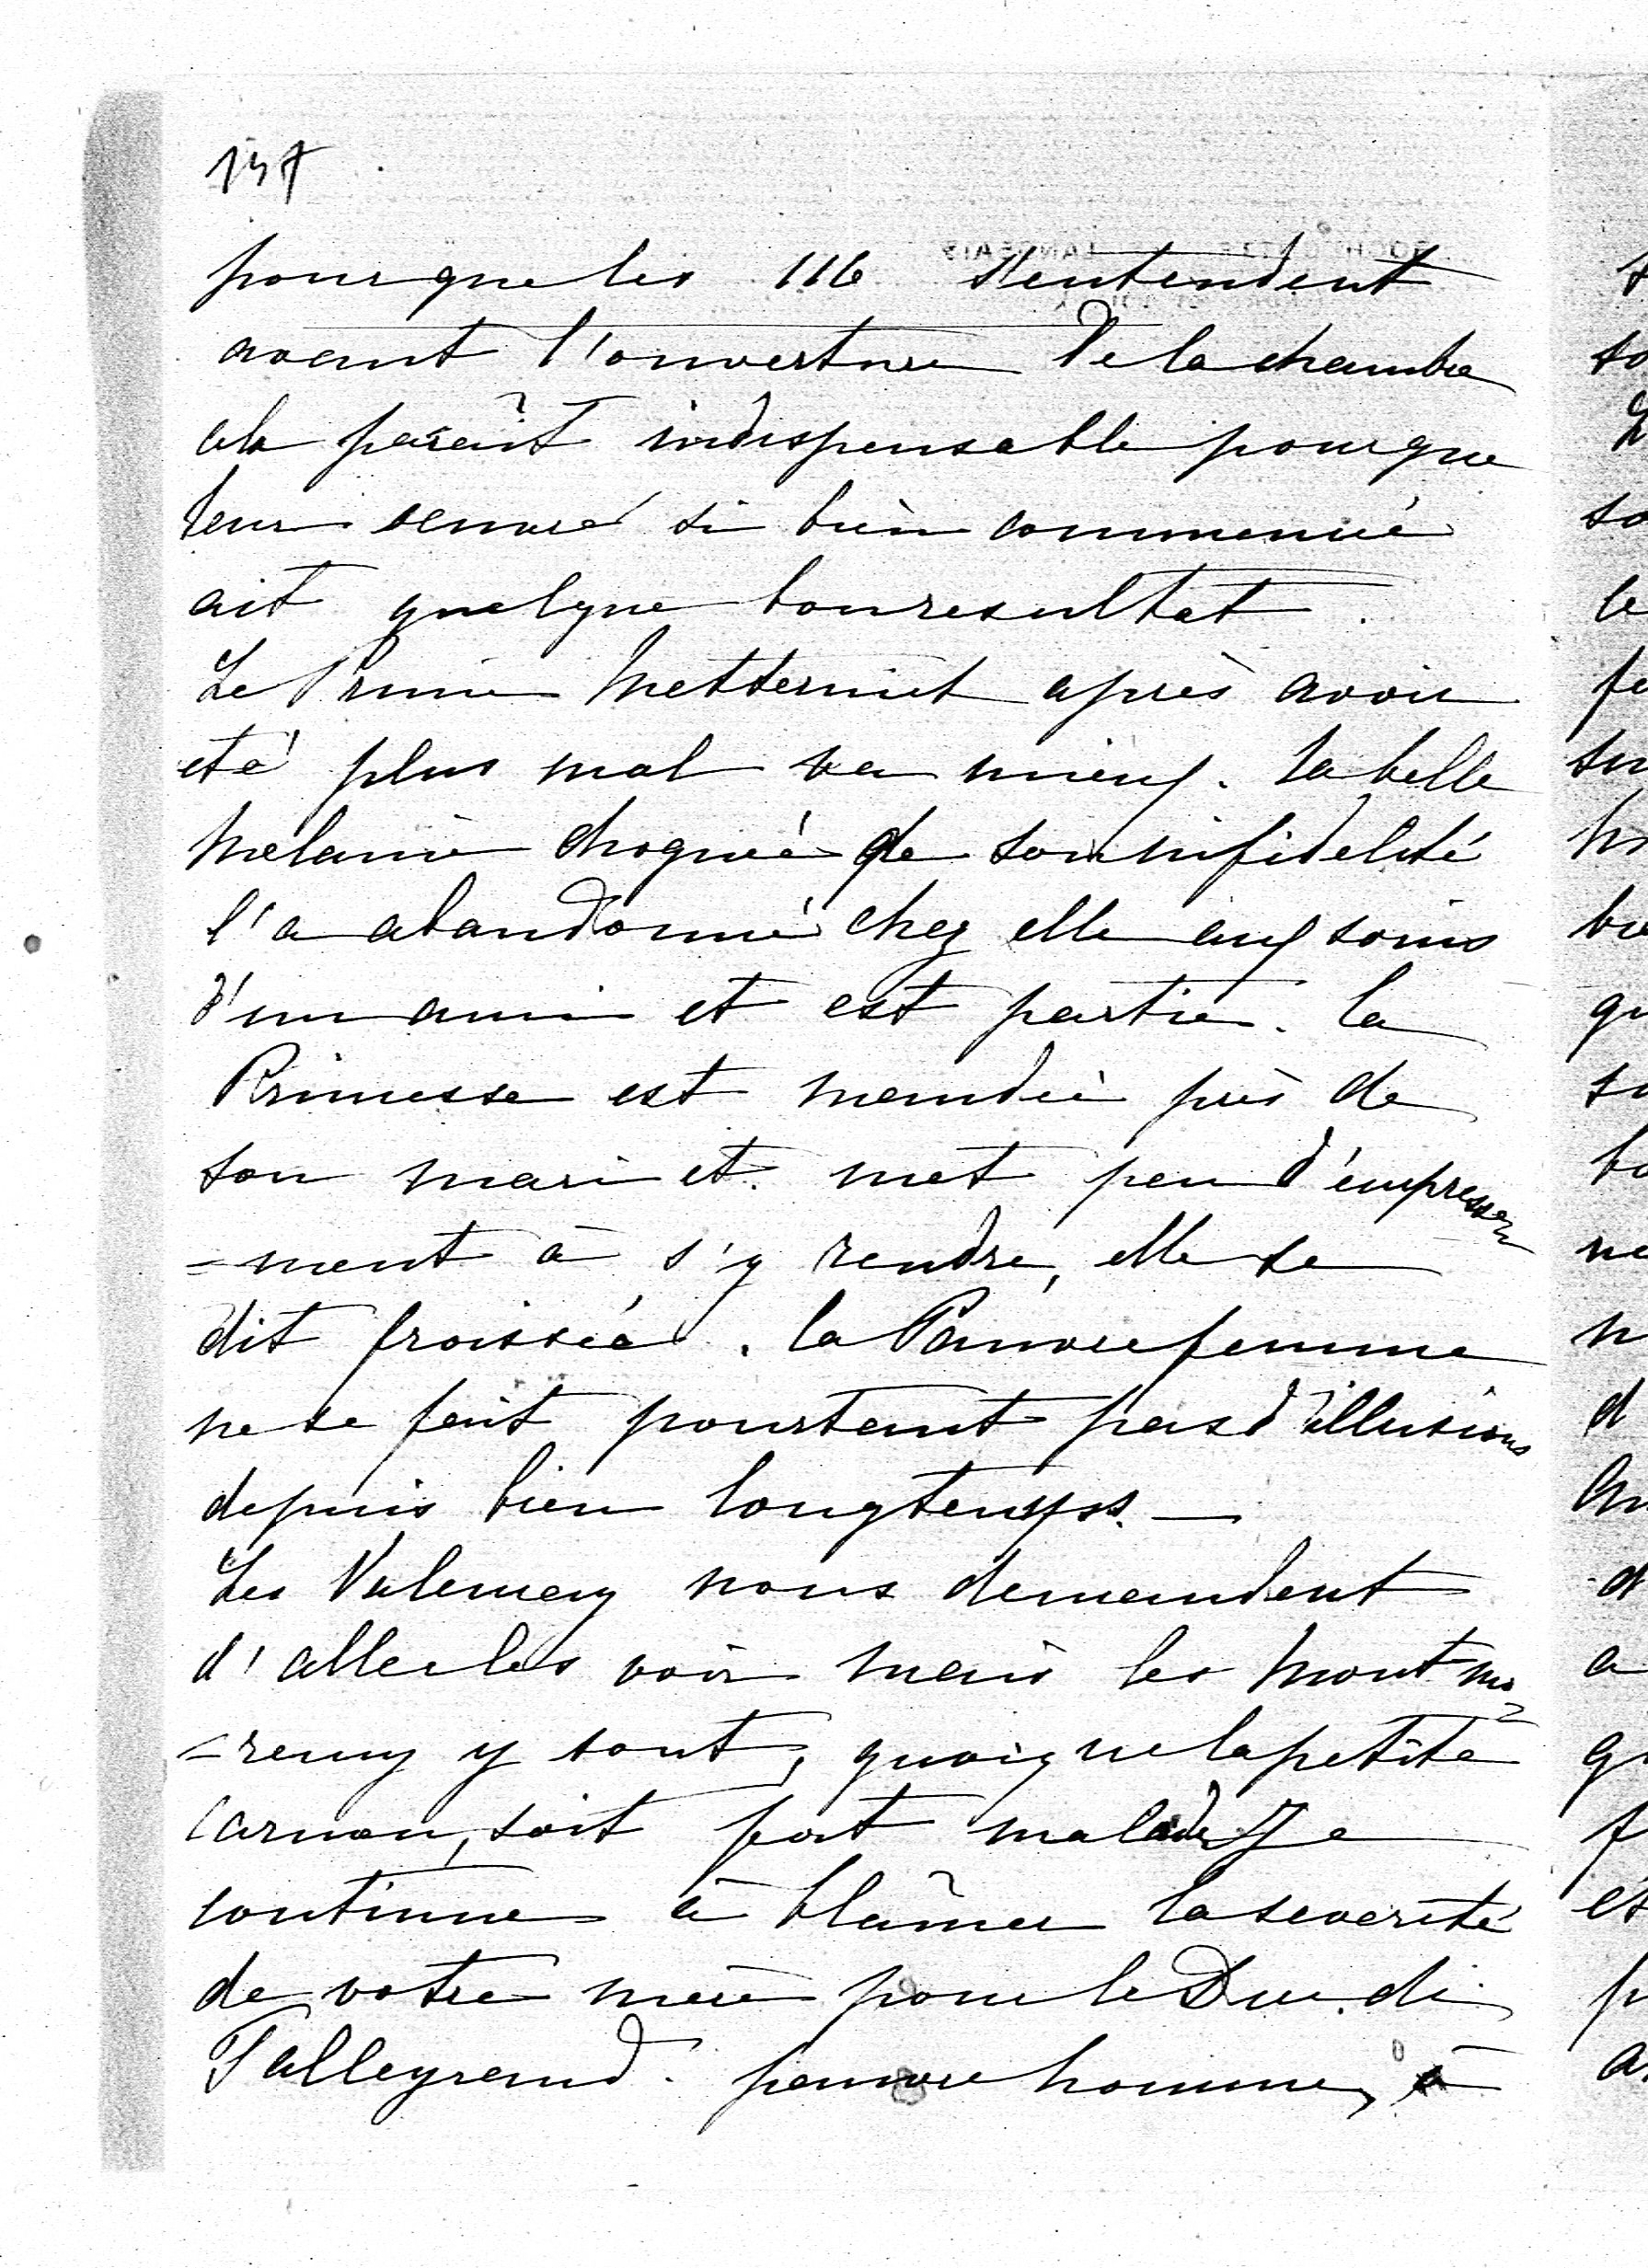 pour que les 116 s'entendent
avant l'ouverture de la chambre
cela paraît indispensable pour que
leur oeuvre si bien commencé
ait quelque bon resultat.
Le Prince Metternich après avoir
eté plus mal va mieux. la belle
Melanie choquée de son infidelité
l'a abandonné chez elle aux soins
d'un ami et est partie. la
Princesse est mandée près de
son mari et met peu d'empresse
=ment à s'y rendre, elle se
dit froissée. la Pauvre femme
ne se fait pourtant pas d'illusions
depuis bien longtemps. —
Les Valencay nous demandent
d'aller les voir mais les Montmo=
=rency y sont, quoique la petite
Carnon, soit fort malade Je
continue à blâmer la severité
de votre mère pour le Duc de
Talleyrand. pauvre homme, à